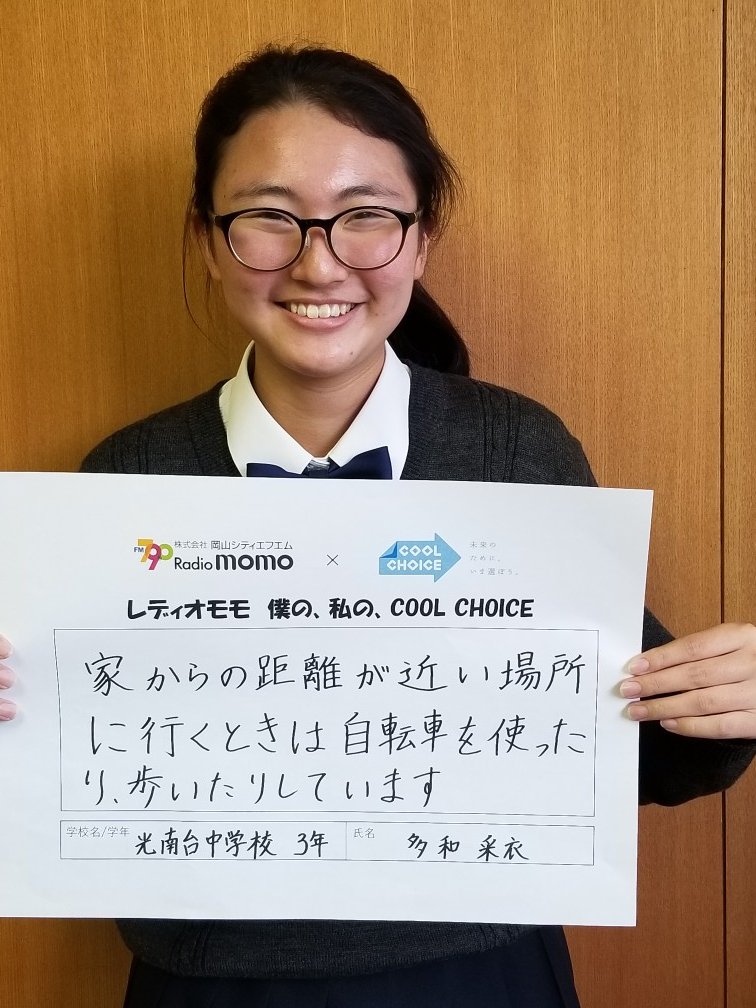 FM790 株式会社 岡山シティエフエム
Radio momo × COOL CHOICE
未来の
ために、
いま選ぼう。
レディオモモ 僕の、私の、COOL CHOICE
家からの距離が近い場所
に行くときは自転車を使った
り、歩いたりしています
学校名/学年 光南台中学校 3年 氏名 多和 采衣